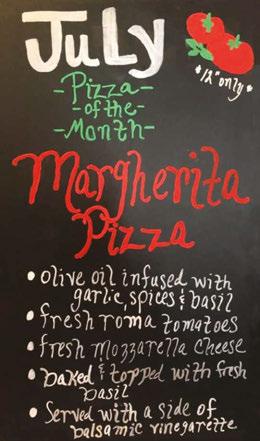 JuLy
*12" only*
-Pizza-
-of the-
-Month-
Margherita
Pizza
• olive oil infused with
garlic, spices & basil
• fresh roma tomatoes
• fresh mozzarella cheese
• baked & topped with fresh
basil
• Served with a side of
balsamic vinegarette